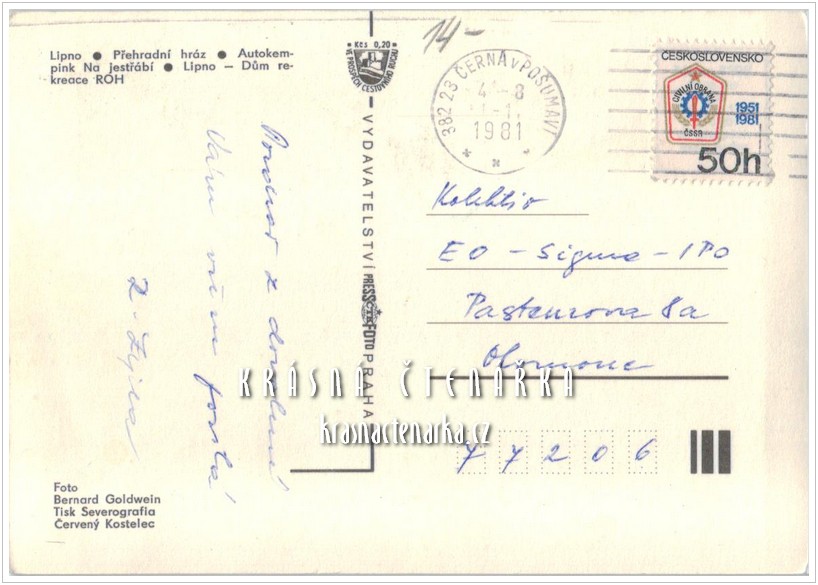 Lipno ● Přehradní hráz ● Autokem-
pink Na jestřábí ● Lipno – Dům re-
kreace ROH
Kčs 0,20
VE PROSPĚCH CESTOVNÍHO RUCHU
14-
382 23 ČERNÁ v POŠUMAVÍ
1981
ČESKOSLOVENSKO
CIVILNÍ OBRANA
ČSSR
1951
1981
50h
Pozdrav z dovolené
Vám všem posílá
VYDAVATELSTVÍ PRESSFOTO PRAHA
ČTK
Kolektiv
EO - Sigma - IPO
Pasteurova 8a
Olomouc
77206
KRÁSNÁ ČTENÁŘKA
krasnactenarka.cz
Foto
Bernard Goldwein
Tisk Severografia
Červený Kostelec